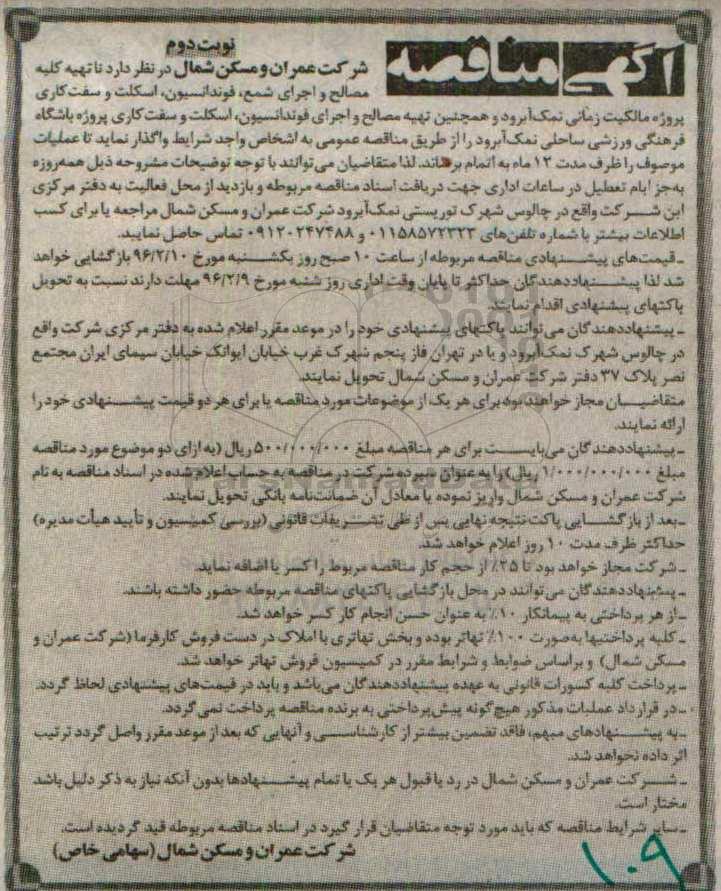 نوبت دوم
آگهی مناقصه
شرکت عمران و مسکن شمال در نظر دارد تا تهیه کلیه
مصالح و اجرای شمع، فونداسیون، اسکلت و سفت کاری
پروژه مالکیت زمانی نمک‌آبرود و همچنین تهیه مصالح و اجرای فونداسیون، اسکلت و سفت کاری پروژه باشگاه
فرهنگی ورزشی ساحلی نمک‌آبرود را از طریق مناقصه عمومی به اشخاص واجد شرایط واگذار نماید تا عملیات
موصوف را ظرف مدت ۱۲ ماه به اتمام برسانند. لذا متقاضیان می‌توانند با توجه توضیحات مشروحه ذیل همه‌روزه
به‌جز ایام تعطیل در ساعات اداری جهت دریافت اسناد مناقصه مربوطه و بازدید از محل فعالیت به دفتر مرکزی
این شرکت واقع در چالوس شهرک توریستی نمک‌آبرود شرکت عمران و مسکن شمال مراجعه یا برای کسب
اطلاعات بیشتر با شماره تلفن‌های ۰۱۱۵۸۵۷۲۳۲۳ و ۰۹۱۲۰۲۴۷۴۸۸ تماس حاصل نمایید.
ـ قیمت‌های پیشنهادی مناقصه مربوطه از ساعت ۱۰ صبح روز یکشنبه مورخ ۹۶/۲/۱۰ بازگشایی خواهد
شد لذا پیشنهاددهندگان حداکثر تا پایان وقت اداری روز شنبه مورخ ۹۶/۲/۹ مهلت دارند نسبت به تحویل
پاکتهای پیشنهادی اقدام نمایند.
ـ پیشنهاددهندگان می‌توانند پاکتهای پیشنهادی خود را در موعد مقرر اعلام شده به دفتر مرکزی شرکت واقع
در چالوس شهرک نمک‌آبرود و یا در تهران فاز پنجم شهرک غرب خیابان ایوانک خیابان سیمای ایران مجتمع
نصر پلاک ۳۷ دفتر شرکت عمران و مسکن شمال تحویل نمایند.
متقاضیان مجاز خواهند بود برای هر یک از موضوعات مورد مناقصه یا برای هر دو قیمت پیشنهادی خود را
ارائه نمایند.
ـ پیشنهاددهندگان می‌بایست برای هر مناقصه مبلغ ۵۰۰/۰۰۰/۰۰۰ ریال (به ازای دو موضوع مورد مناقصه
مبلغ ۱/۰۰۰/۰۰۰/۰۰۰ ریال) را به عنوان سپرده شرکت در مناقصه به حساب اعلام شده در اسناد مناقصه به نام
شرکت عمران و مسکن شمال واریز نموده یا معادل آن ضمانت‌نامه بانکی تحویل نمایند.
ـ بعد از بازگشایی پاکت نتیجه نهایی پس از طی تشریفات قانونی (بررسی کمیسیون و تأیید هیأت مدیره)
حداکثر ظرف مدت ۱۰ روز اعلام خواهد شد.
ـ شرکت مجاز خواهد بود تا ۲۵٪ از حجم کار مناقصه مربوط را کسر یا اضافه نماید.
ـ پیشنهاددهندگان می‌توانند در محل بازگشایی پاکتهای مناقصه مربوطه حضور داشته باشند.
ـ از هر پرداختی به پیمانکار ۱۰٪ به عنوان حسن انجام کار کسر خواهد شد.
ـ کلیه پرداختیها به‌صورت ۱۰۰٪ تهاتر بوده و بخش تهاتری با املاک در دست فروش کارفرما (شرکت عمران و
مسکن شمال) و براساس ضوابط و شرایط مقرر در کمیسیون فروش تهاتر خواهد شد.
ـ پرداخت کلیه کسورات قانونی به عهده پیشنهاددهندگان می‌باشد و باید در قیمت‌های پیشنهادی لحاظ گردد.
ـ در قرارداد عملیات مذکور هیچ‌گونه پیش‌پرداختی به برنده مناقصه پرداخت نمی‌گردد.
ـ به پیشنهادهای مبهم، فاقد تضمین بیشتر از کارشناسی و آنهایی که بعد از موعد مقرر واصل گردد ترتیب
اثر داده نخواهد شد.
ـ شرکت عمران و مسکن شمال در رد یا قبول هر یک یا تمام پیشنهادها بدون آنکه نیاز به ذکر دلیل باشد
مختار است.
ـ سایر شرایط مناقصه که باید مورد توجه متقاضیان قرار گیرد در اسناد مناقصه مربوطه قید گردیده است.
شرکت عمران و مسکن شمال (سهامی خاص)
۱۰۹